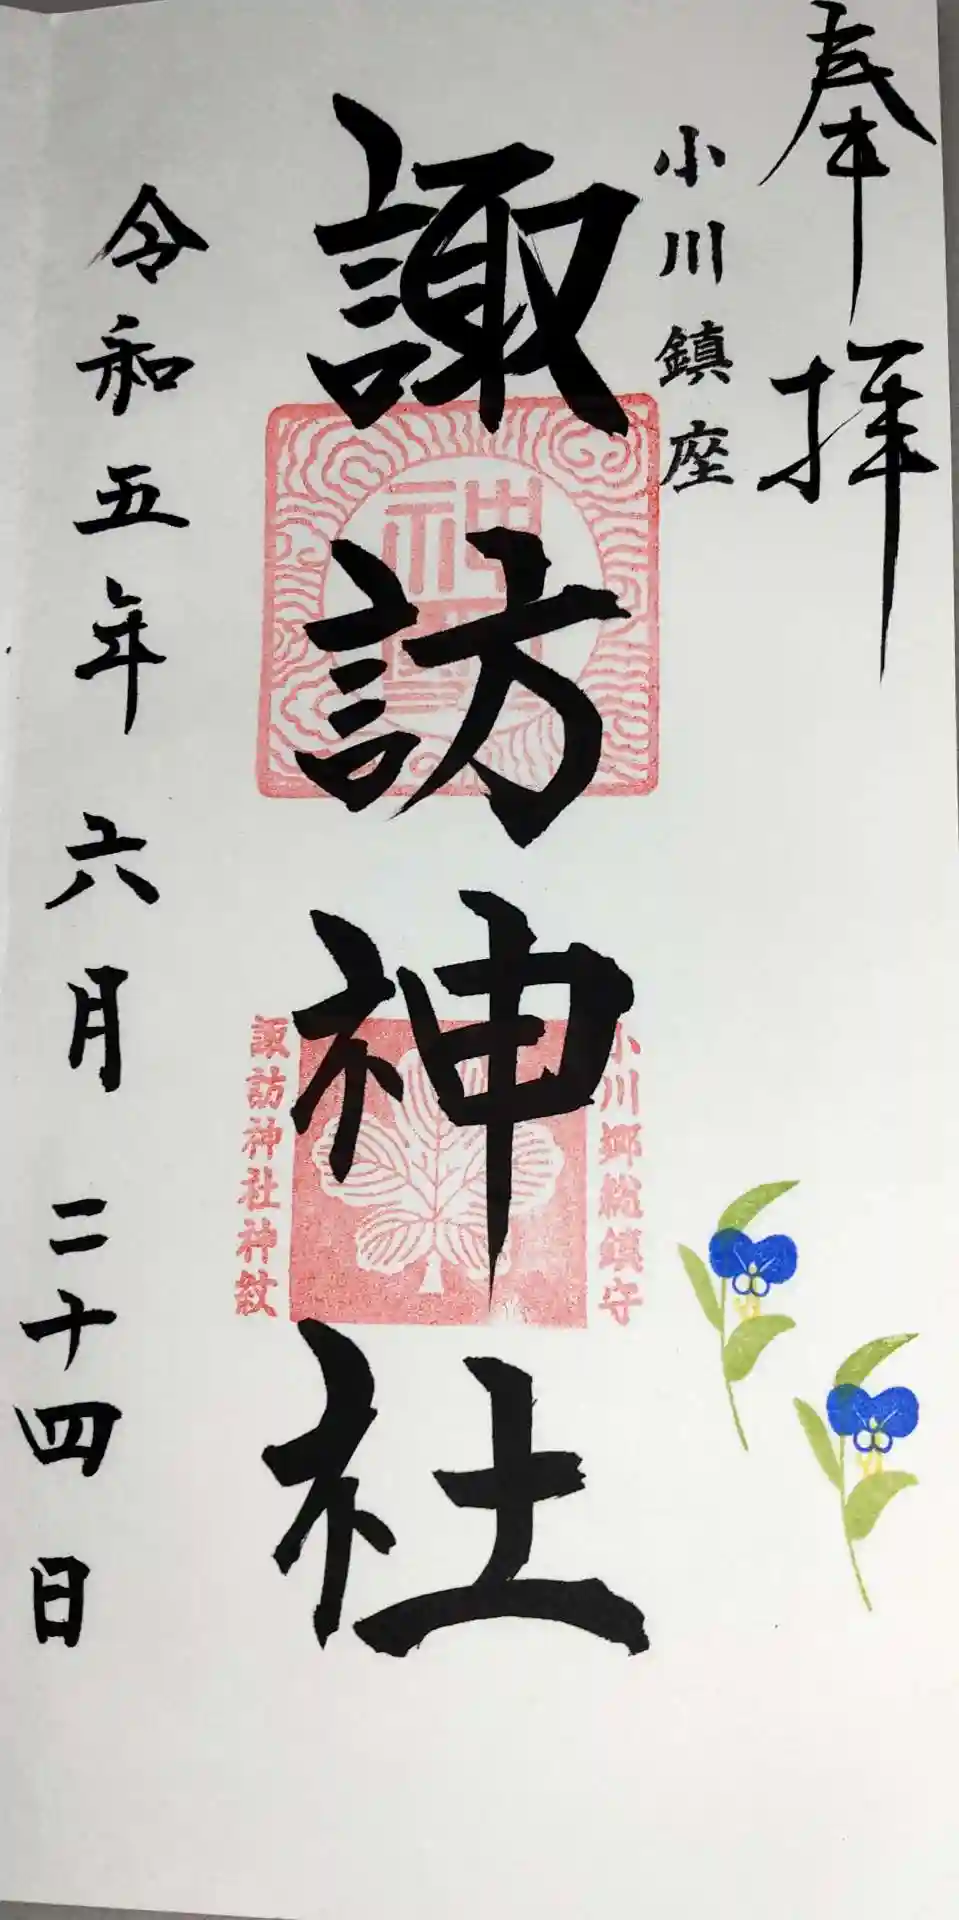 奉拝
小川鎮座
諏訪神社
小川郷総鎮守
諏訪神社神紋
令和五年六月二十四日